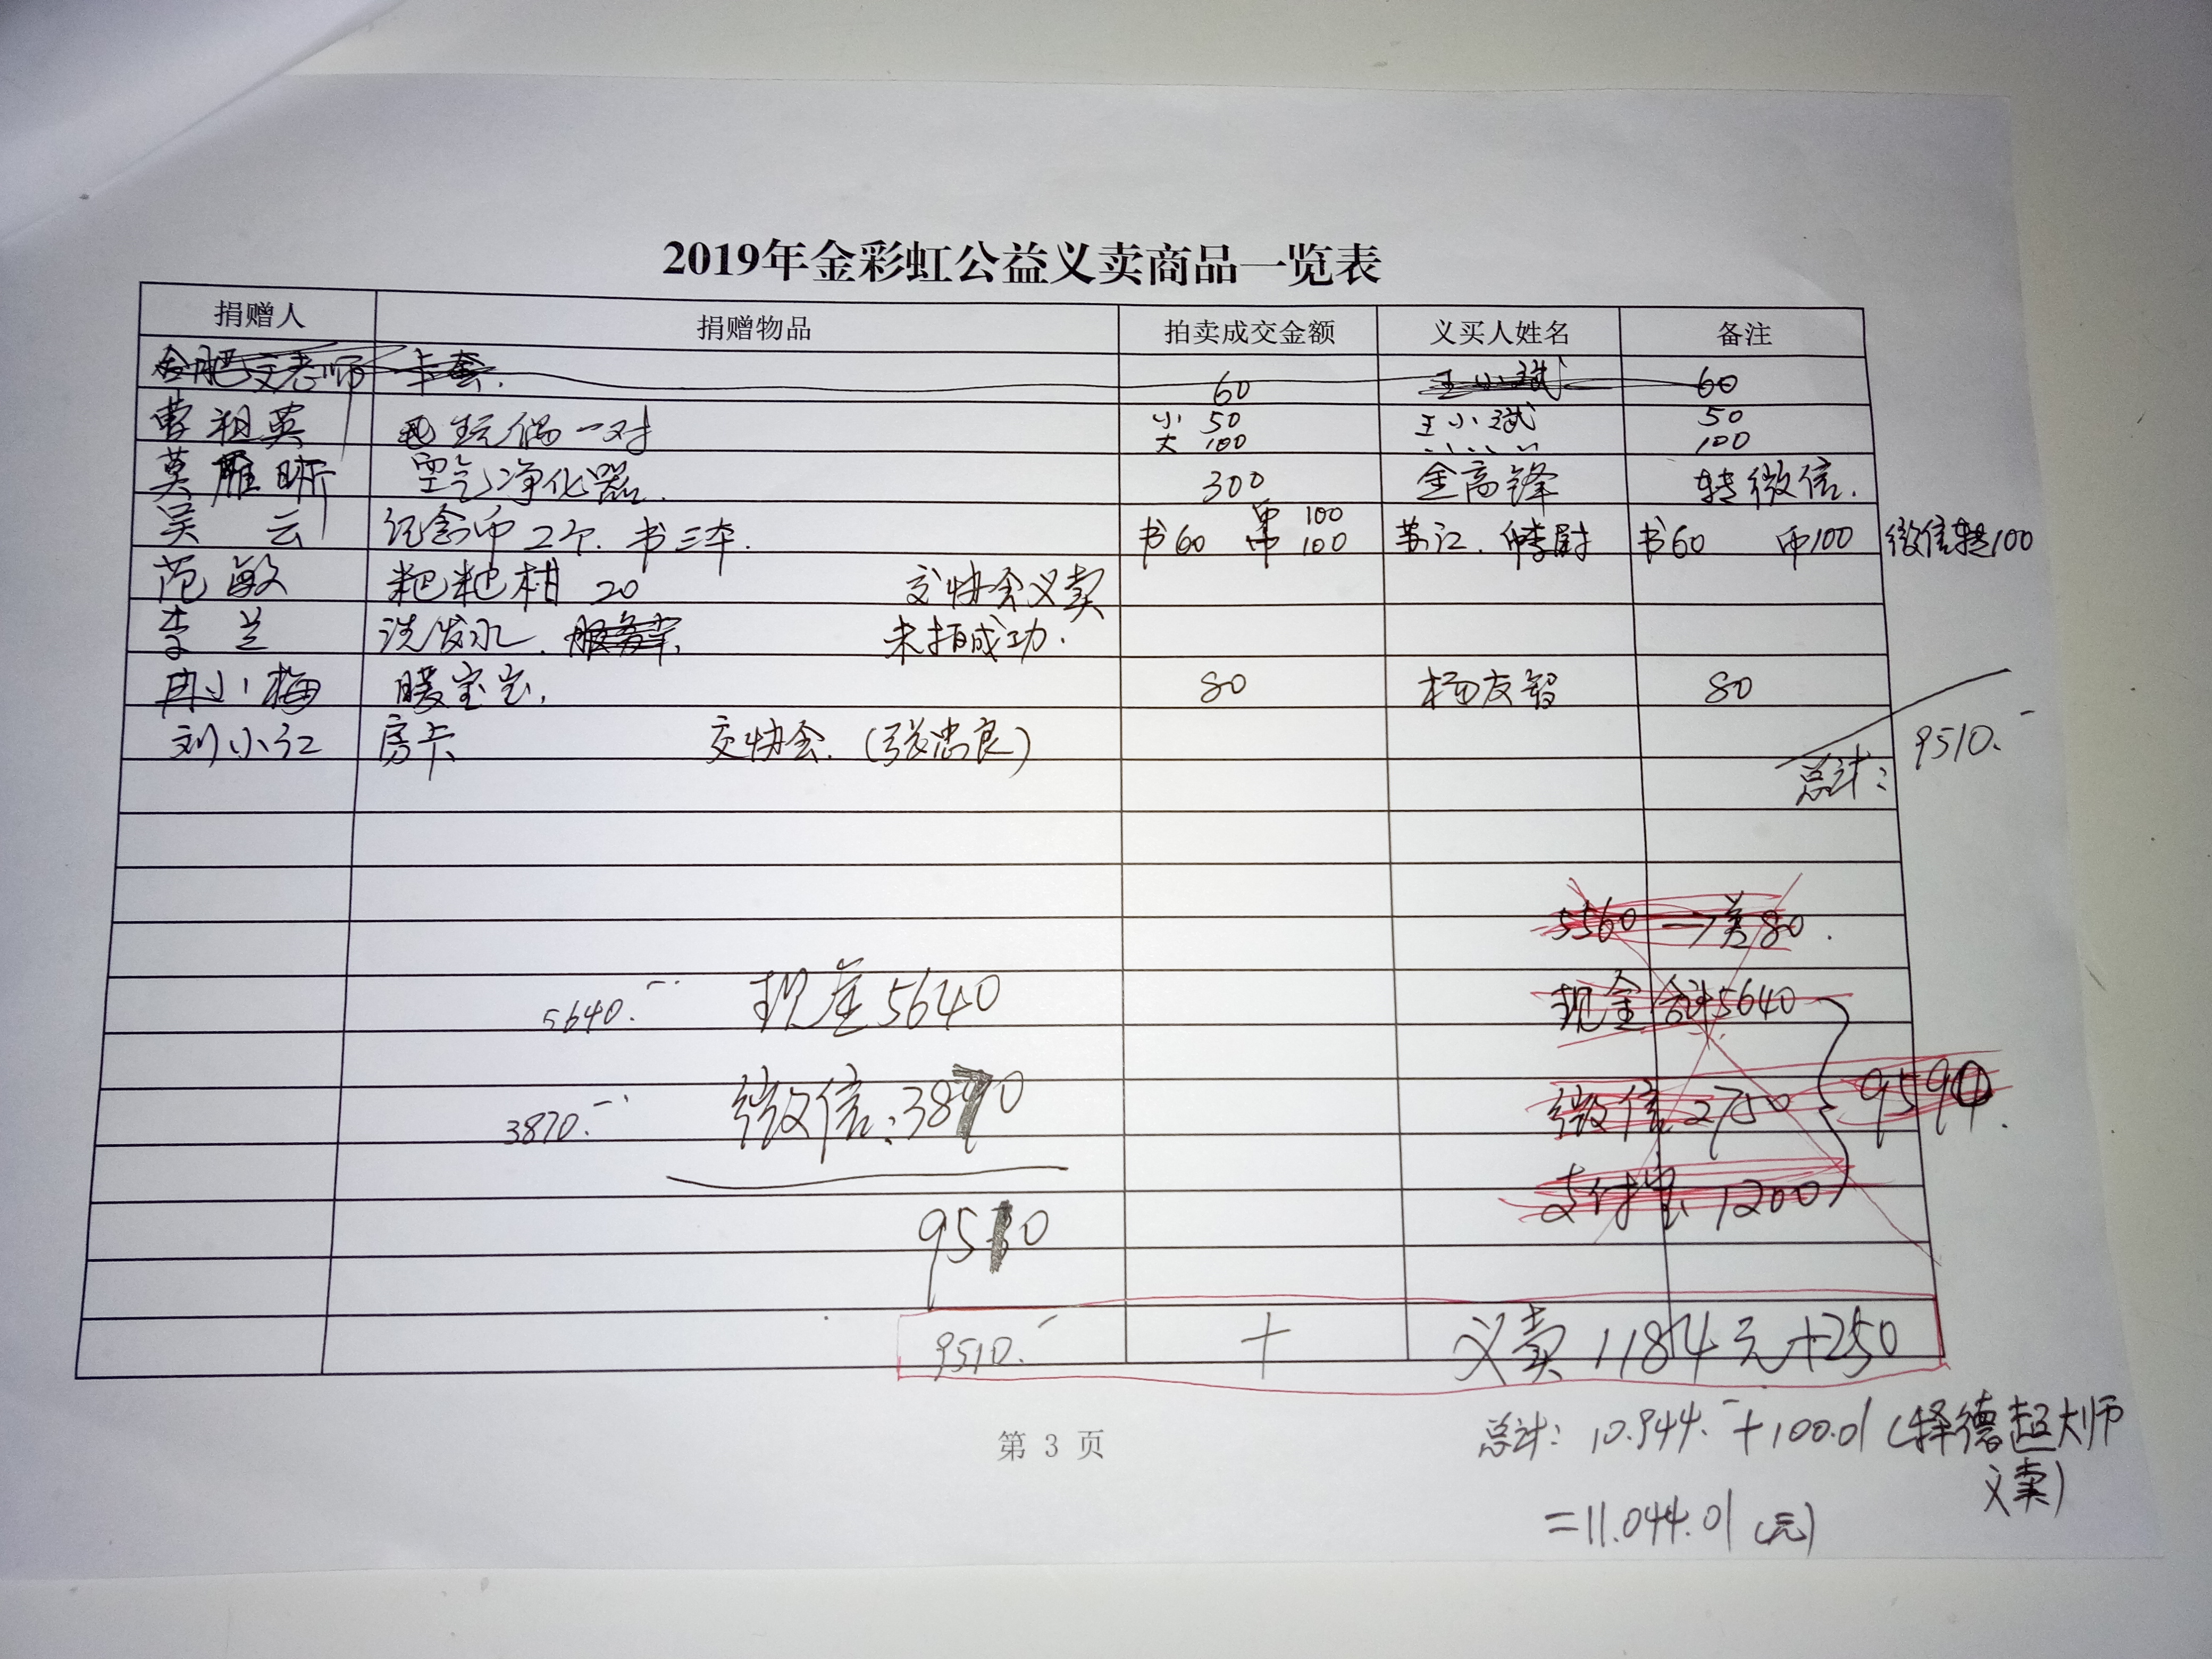 2019年金彩虹公益义卖商品一览表
捐赠人 捐赠物品 拍卖成交金额 义买人姓名 备注
合肥文老师 卡套. 60 王小斌 60
曹祖英 生玩偶一对 小 50 王小斌 50
大 100 、、、、 100
莫雁昕 空气净化器. 300 金高锋 转微信.
吴 云 纪念币2个. 书三本. 书60 币 100 苏江. 书60 币100 微信转100
币 100
范敏 粑粑柑 20 交协会义卖
李 兰 洗发水. 未拍成功.
冉小梅 暖宝宝. 80 杨友智 80
刘小江 房卡 交协会.(张忠良)
总计: 9510.-
5560 → 差80.
5640.- 现金5640 现金合计5640
3870.- 微信:3870 微信2750 9590.
支付宝 1200
9510
9510.- + 义卖1184元+250
第 3 页
总计: 10.944.- +100.01 (择德超大师
义卖)
=11.044.01 (元)